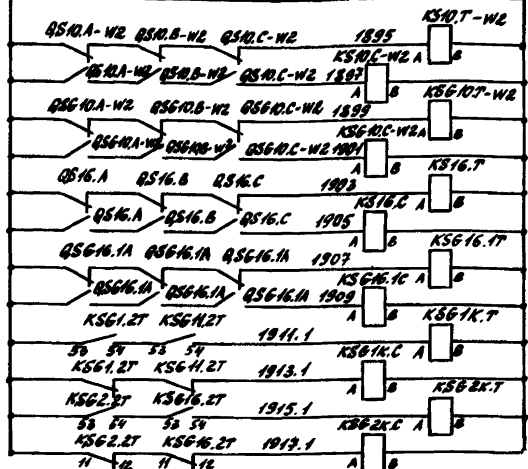 QS10.A-W2 QS10.B-W2 QS10.C-W2 1895 KS10.T-W2
QS10.A-W2 QS10.B-W2 QS10.C-W2 1897 KS10.C-W2 A B
A B
QSG10.A-W2 QSG10.B-W2 QSG10.C-W2 1899 KSG10.T-W2
QSG10.A-W2 QSG10B-W2 QSG10.C-W2 1901 KSG10.C-W2 A B
A B
QS16.A QS16.B QS16.C 1903 KS16.T
QS16.A QS16.B QS16.C 1905 KS16.C A B
A B
QSG16.1A QSG16.1A QSG16.1A 1907 KSG16.1T
QSG16.1A QSG16.1A QSG16.1A 1909 KSG16.1C A B
A B
KSG1.2T KSG11.2T 1911.1 KSG1K.T
53 54 53 54 A B
KSG1.2T KSG11.2T 1913.1 KSG1K.C
A B
KSG2.2T KSG16.2T 1915.1 KSG2K.T
53 54 53 54 A B
KSG2.2T KSG16.2T 1917.1 KSG2K.C
11 12 11 12 A B